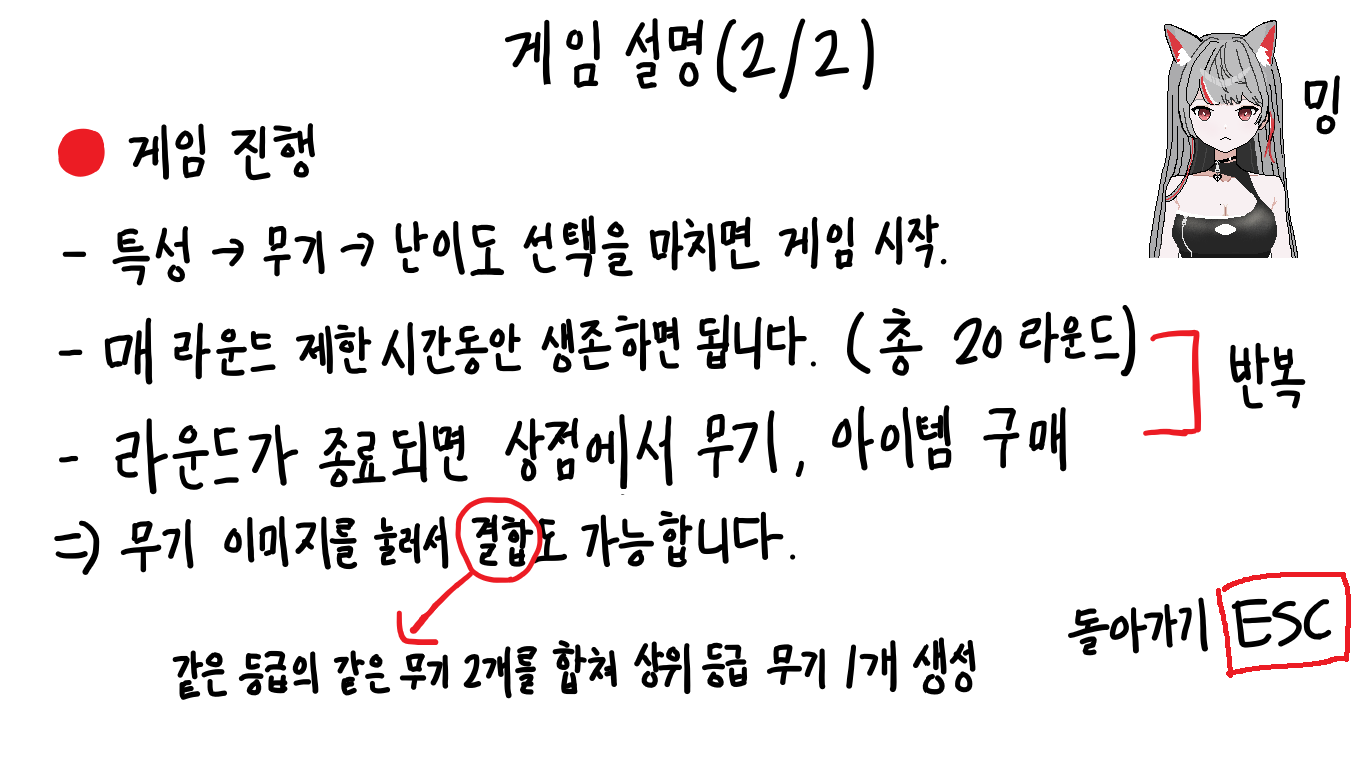 게임 설명(2/2)
밍
● 게임 진행
- 특성 → 무기 → 난이도 선택을 마치면 게임 시작.
- 매 라운드 제한시간동안 생존하면 됩니다. (총 20 라운드)
반복
- 라운드가 종료되면 상점에서 무기, 아이템 구매
=> 무기 이미지를 눌러서 결합도 가능합니다.
돌아가기 ESC
같은 등급의 같은 무기 2개를 합쳐 상위 등급 무기 1개 생성